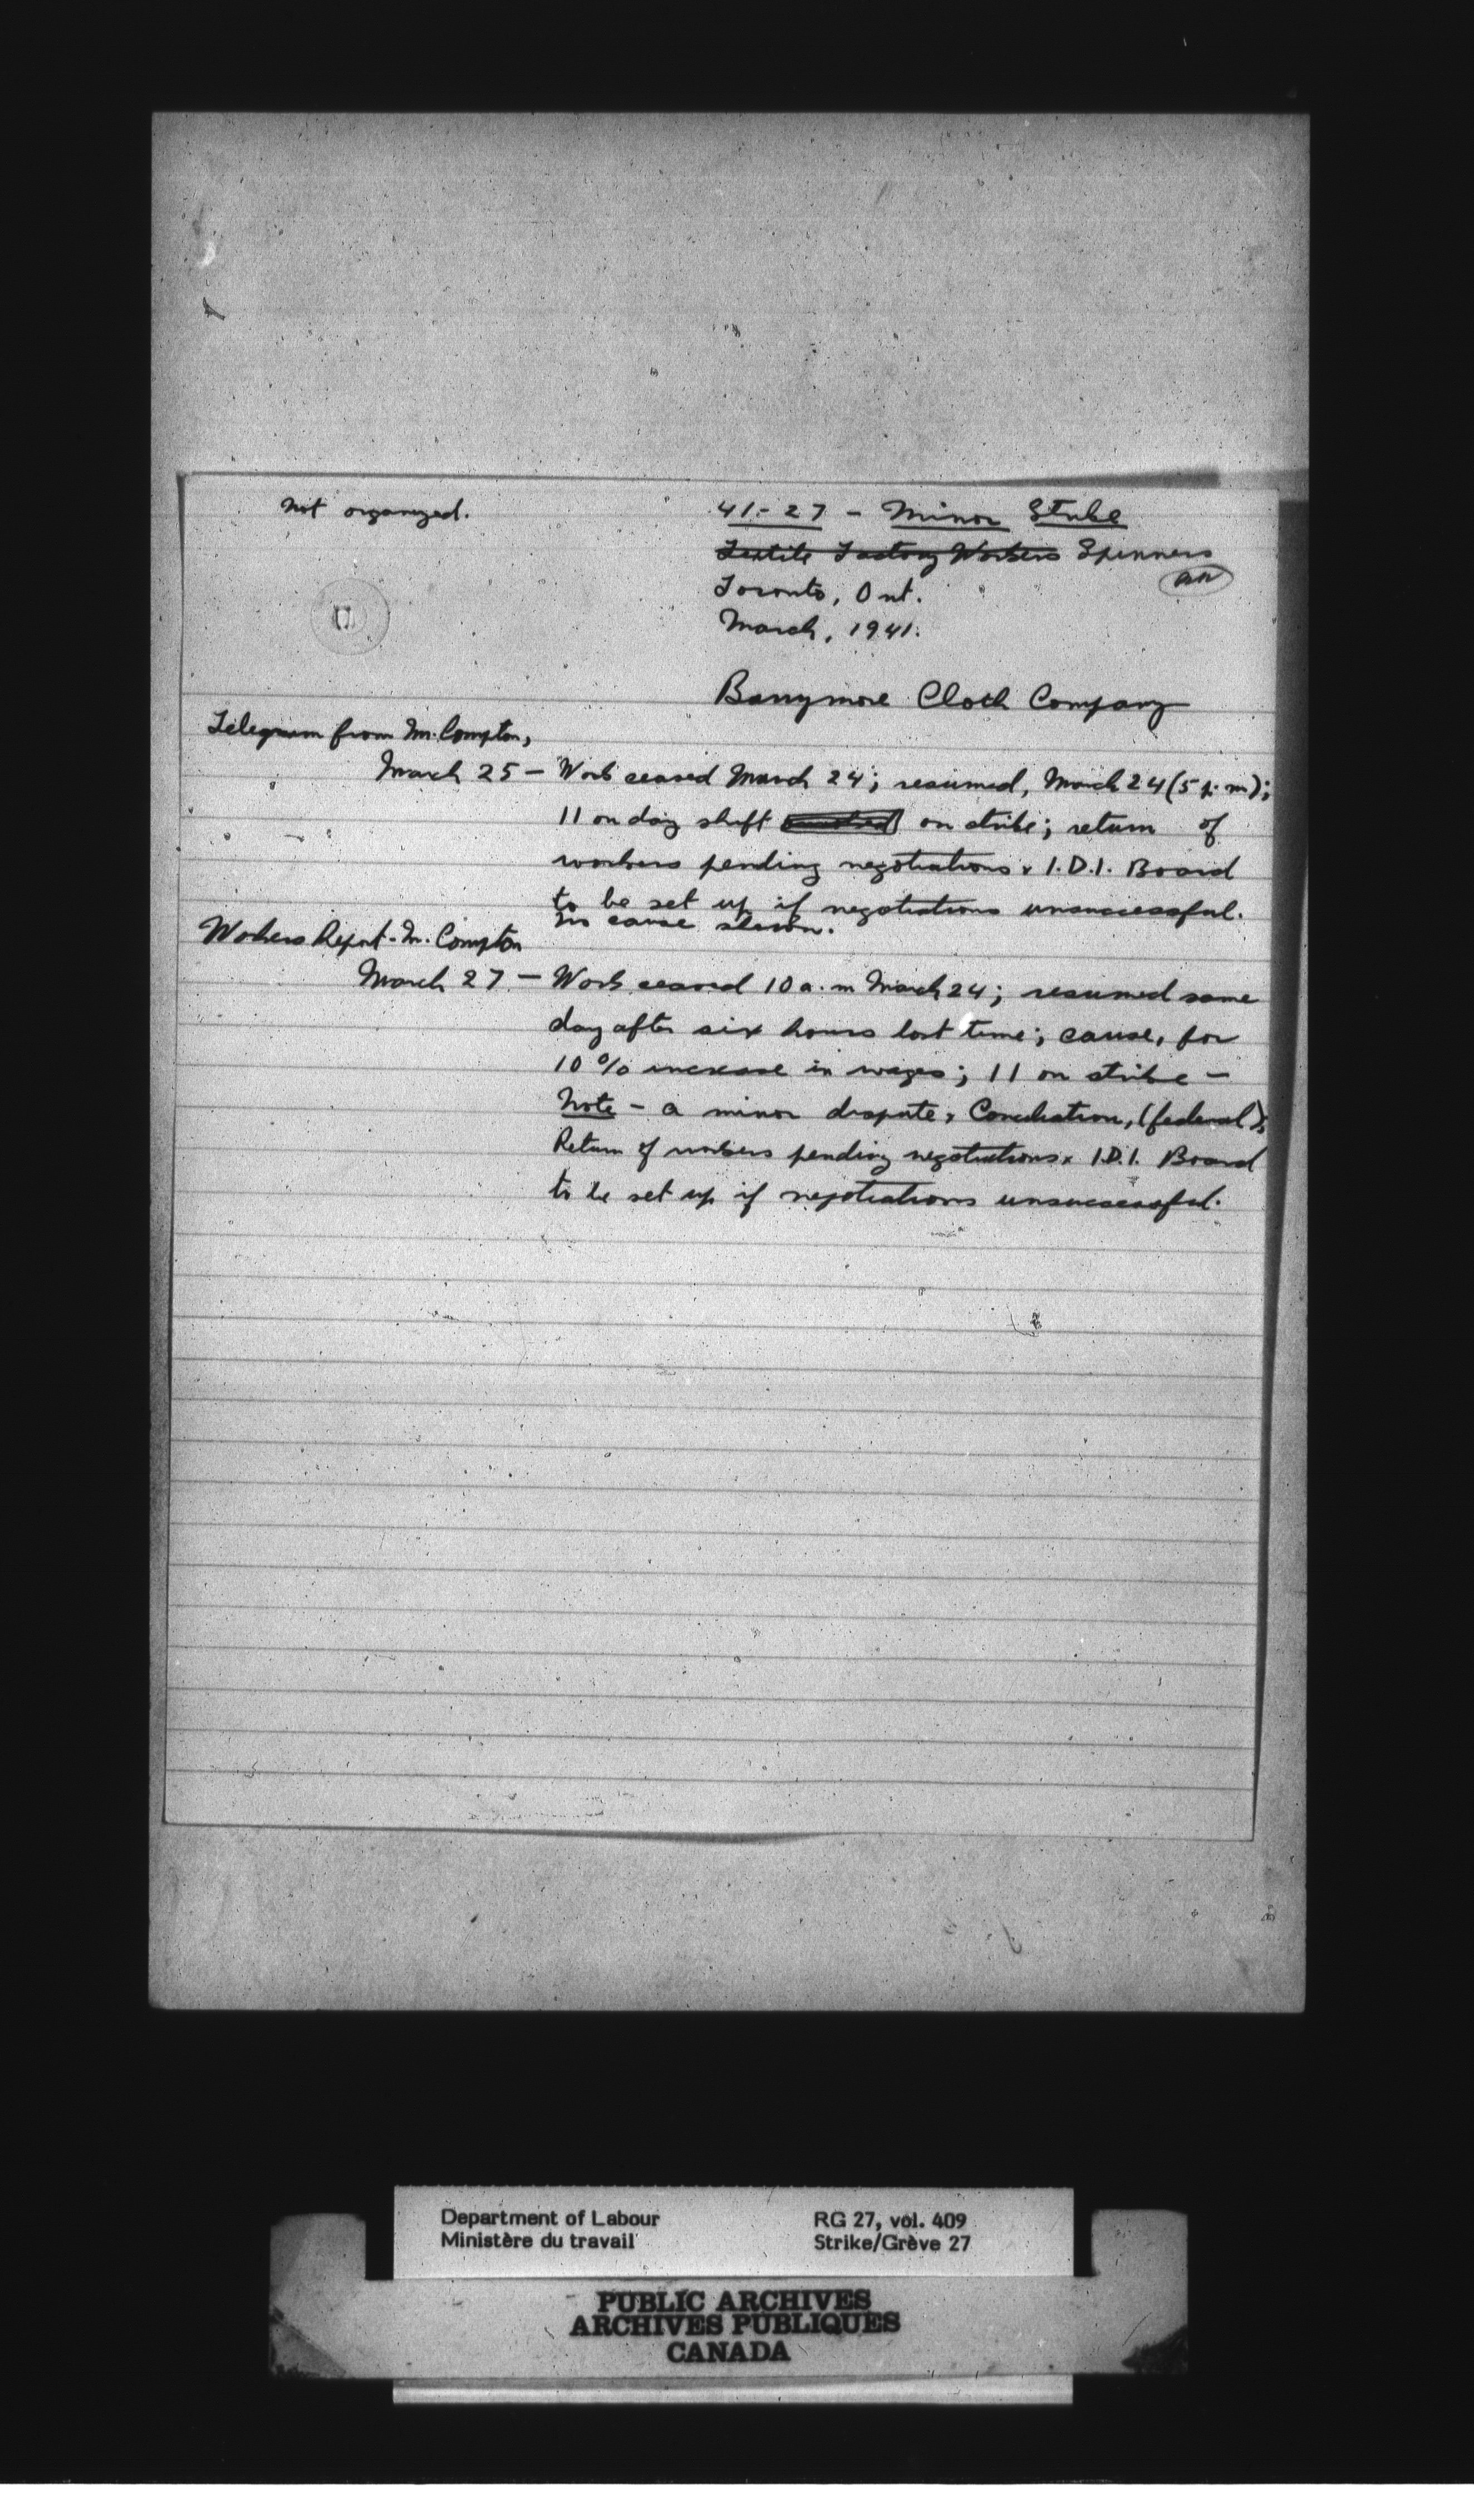 Not organized.
41-27 - Minor Strike
Textile Factory Workers Spinners
Toronto, Ont.
March, 1941.
Barrymore Cloth Company
Telegram from M. Compton,
March 25 - Work ceased March 24; resumed, March 24 (5 p.m);
11 on day shift on strike; return of
workers pending negotiations & I.D.I. Board
to be set up if negotiations unsuccessful.
No cause shown.
Workers Report - M. Compton
March 27 - Work ceased 10 a.m March 24; resumed same
day after six hours lost time; cause, for
10% increase in wages; 11 on strike -
Note - a minor dispute, Conciliation, (federal);
Return of workers pending negotiations & I.D.I. Board
to be set up if negotiations unsuccessful.
Department of Labour
Ministère du travail
RG 27, vol. 409
Strike/Grève 27
PUBLIC ARCHIVES
ARCHIVES PUBLIQUES
CANADA